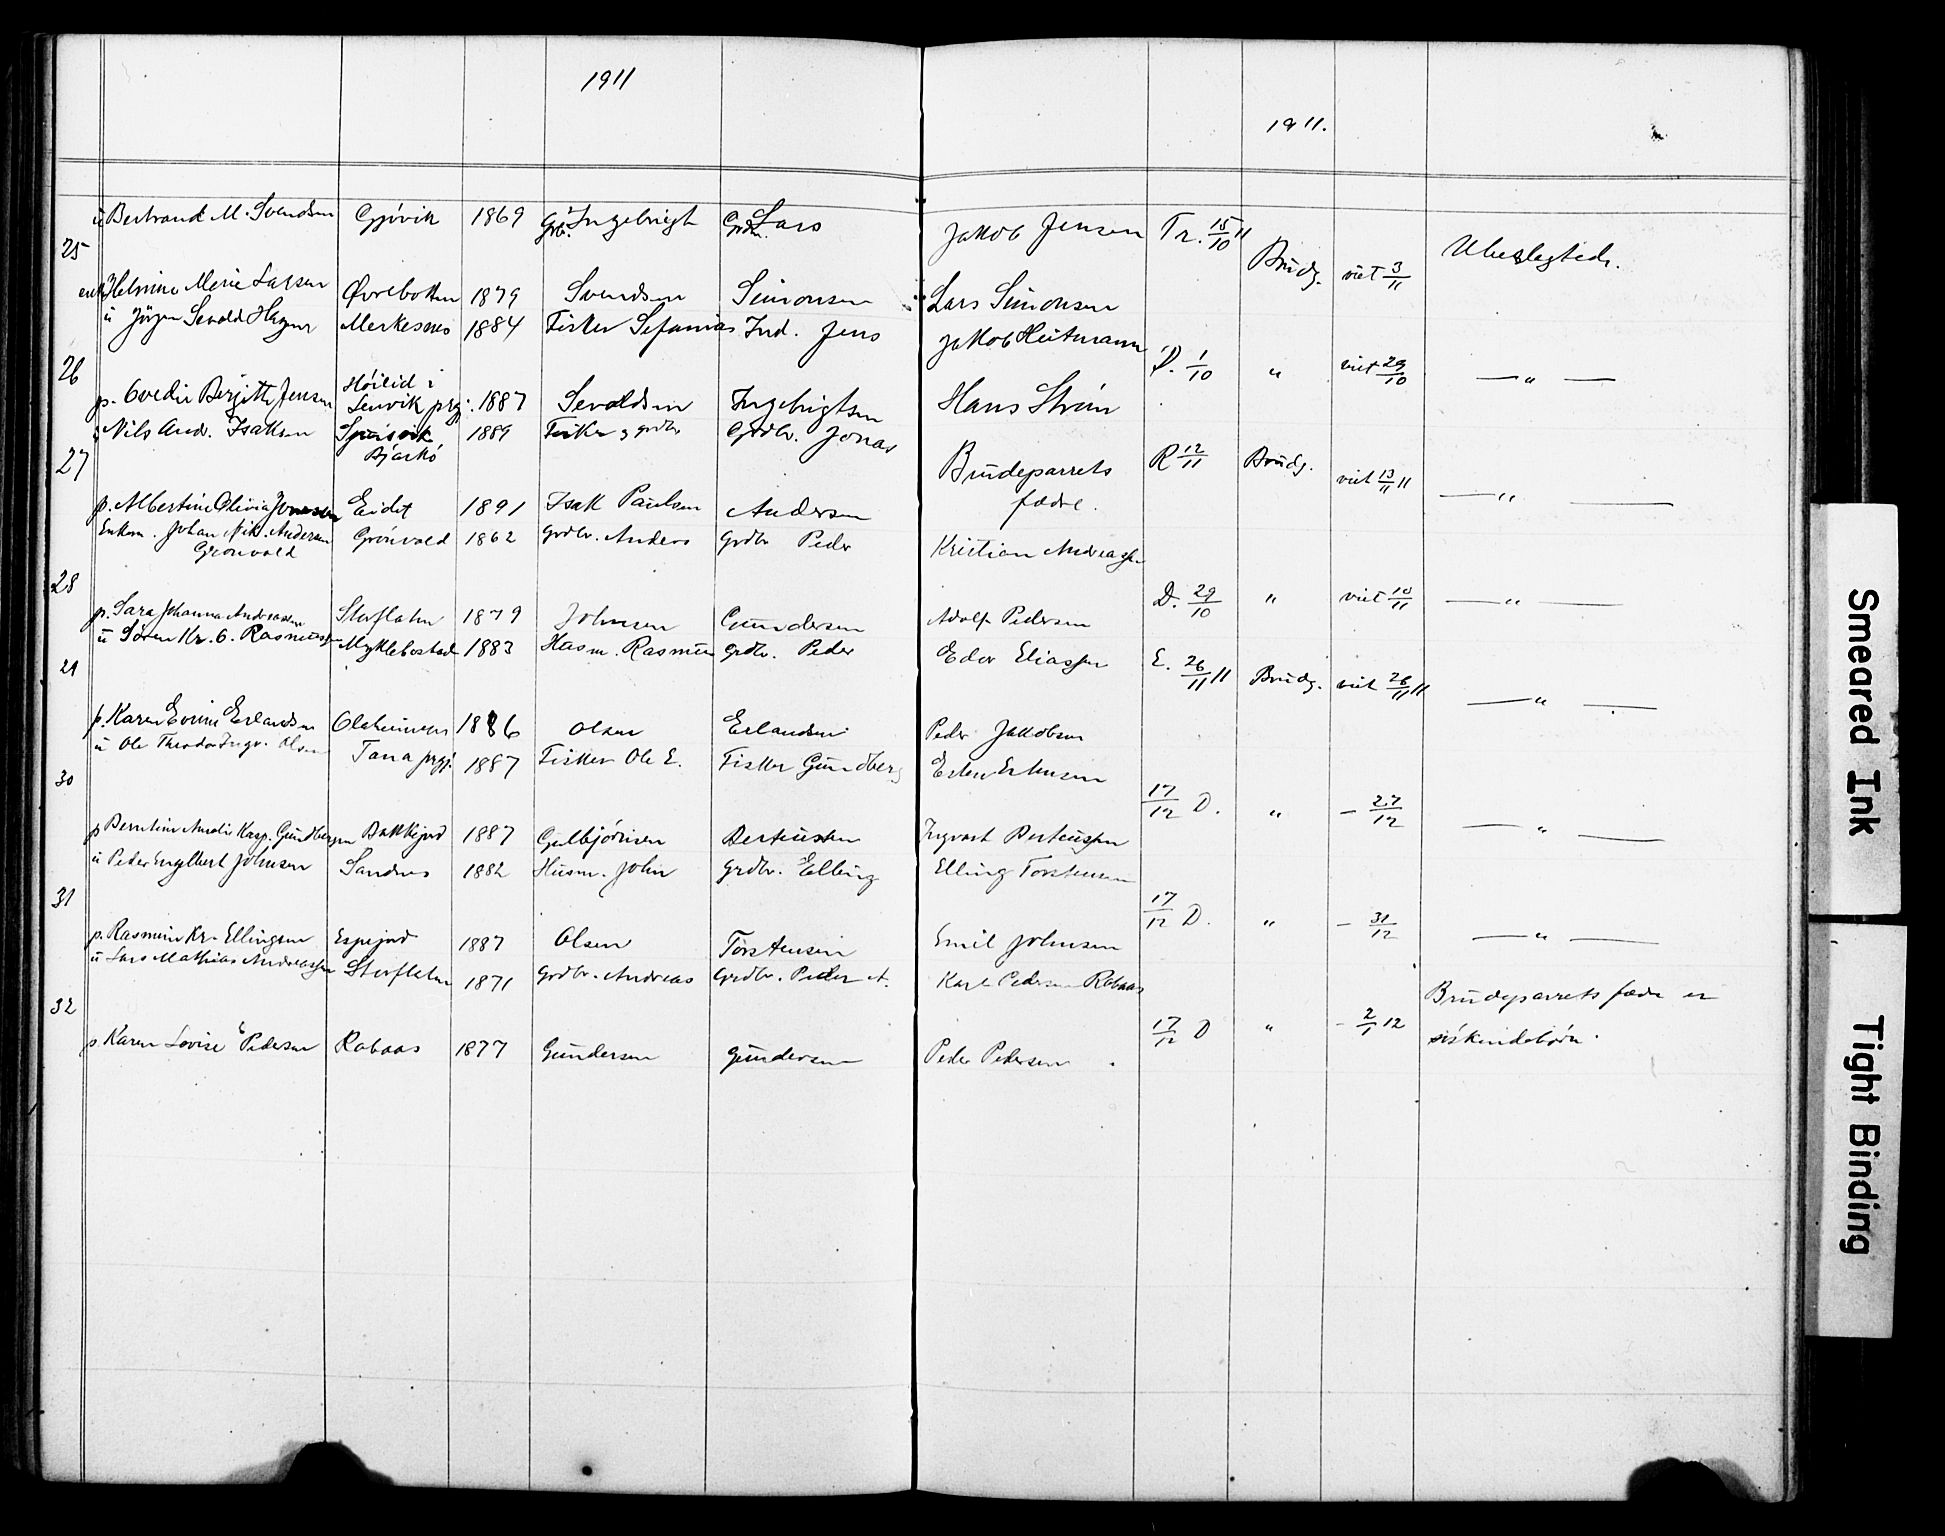 1911
1911.
u Bertrand M. Svendsen Gjövik 1869 Grdb. Ingebrigt Grdm. Lars Jakob Jensen Tr. 15/10 11
25 Brudg. viet 3/11 Ubeslægtede.
enke Helmine Marie Larsen Øvrebotten 1879 Svendsen Simonsen Lars Simonsen
u Jörgen Sevald Merkesnes 1884 Fisker Sefanias Ind. Jens Jakob Heitmann
26 D. 1/10 " viet 29/10 — " —
p. Ovedie Bergitte Jensen Höilid i Lenvik prgj. 1887 Sevaldsen Ingebrigtsen Hans Ström
u Nils And. Isaksen Bjarkö 1889 Fisker og grdbr Grdbr. Jonas
27 Brudeparrets fædre. R 12/11 Brudg. viet 13/11 11 — " —
p. Albertine Olivia Jonassen Eidet 1891 Isak Paulsen Andersen
Enkem. Johan Nik. Andersen Grönvold Grönvold 1862 Grdbr. Anders Grdbr Peder Kristian Andreassen
28 D. 29/10 " viet 10/11 — " —
p. Sara Johanna Andreassen Storflaten 1879 Johnsen Gundersen Adolf Pedersen
u Sören Kr. O. Rasmussen Myklebostad 1883 Husm. Rasmus Grdbr. Peder Edor Eliassen
29 E. 26/11 11 Brudg. viet 26/11 11 — " —
p. Karen Evine Erlandsen Olaheimen 1886 Olsen Erlandsen Peder Jakobsen
u Ole Theodor Ingv. Olsen Tana prgj. 1887 Fisker Ole E. Fisker Gundberg Esten Estensen
30 17/12 D. " – 27/12 — " —
p Berntine Amalie Kasp. Gundbergsen Bakkejord 1887 Gulbjörnsen Berteussen Ingvart Berteussen
u Peder Engelbert Johnsen Sandnes 1882 Husm. John Grdbr. Elling Elling Torstensen
31 17/12 D. " – 31/12 — " —
p. Rasmine Kr. Ellingsen Espejord 1887 Olsen Torstensen Emil Johnsen
u Lars Mathias Andreassen Storflaten 1871 Grdbr. Andreas Grdbr. Peder A. Karl Pedersen Rabaas
32 17/12 D " – 2/1 12 Brudeparrets fædre er
söskendebörn.
p Karen Lovise Pedersen Rabaas 1877 Gundersen Gundersen Peder Pedersen
Smeared Ink
Tight Binding